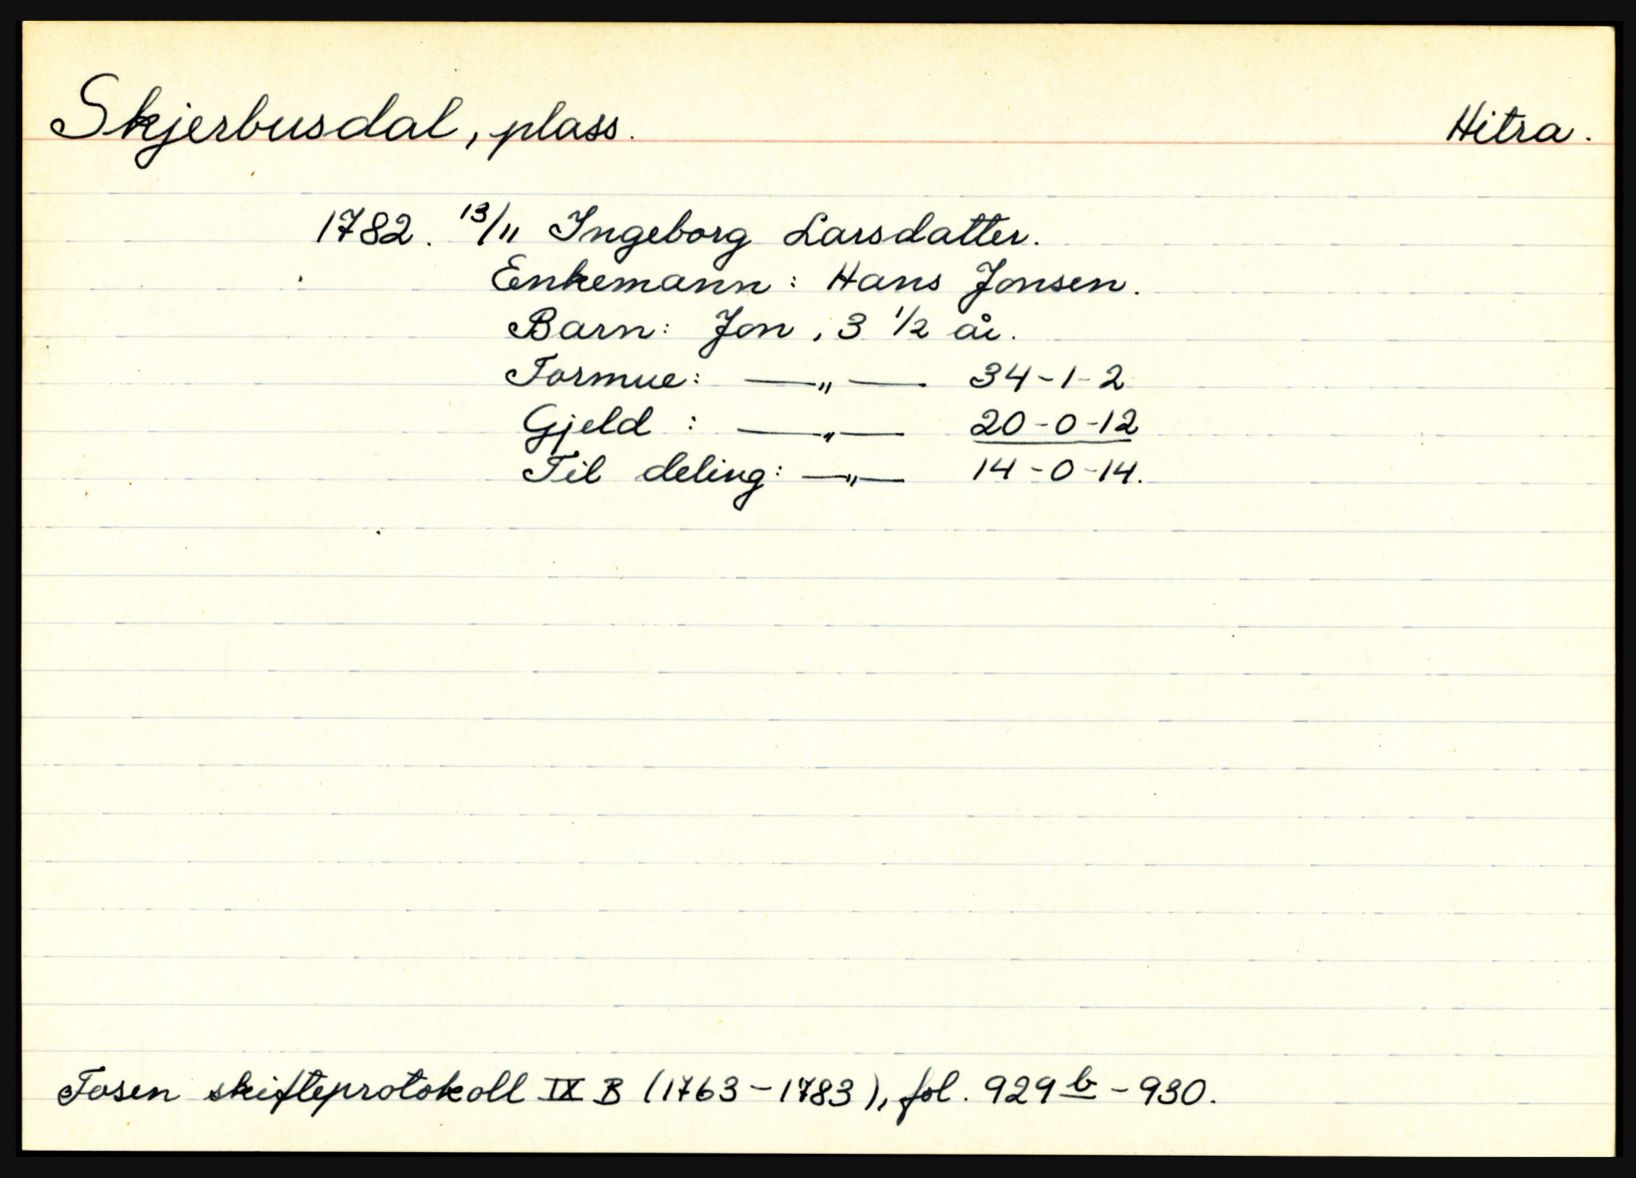 Skjerbusdal, plass. Hitra.
1782. 13/11 Ingeborg Larsdatter.
Enkemann: Hans Jonsen.
Barn: Jon, 3 1/2 år.
Formue: —"— 34-1-2
Gjeld : —"— 20-0-12
Til deling: —"— 14-0-14.
Fosen skifteprotokoll IX B (1763-1783), fol. 929b-930.